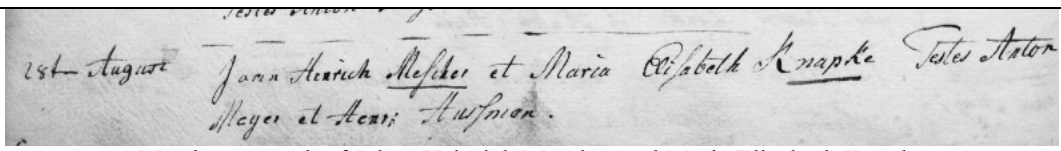 Testes Anton
28t August Joan Henrich Mescher et Maria Elisabeth Knapke Testes Anton
Meyer et Henri Husman.